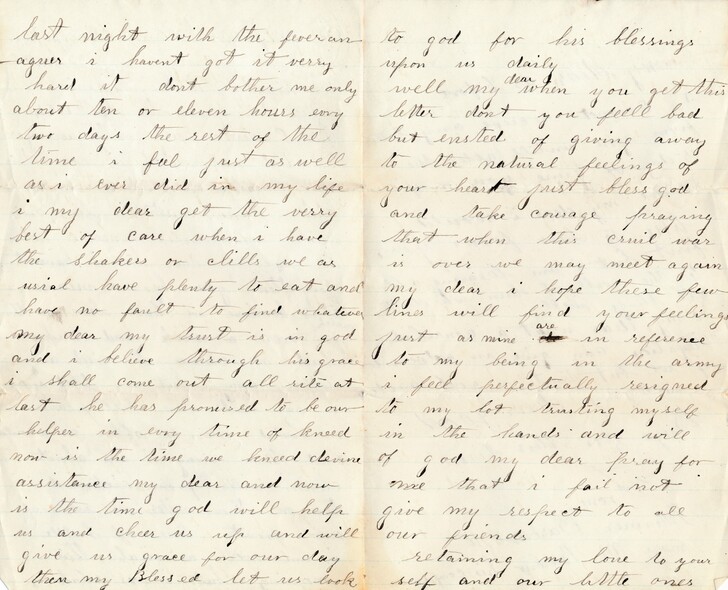 last night with the fever an
aguer i havent got it verry
hard it dont bother me only
about ten or eleven hours evry
two days the rest of the
time i feel just as well
as i ever did in my life
i my dear get the verry
best of care when i have
the shakers or chills we as
usial have plenty to eat and
have no fault to find whatever
my dear my trust is in god
and i believe through his grace
i shall come out all rite at
last he has promised to be our
helper in evry time of kneed
now is the time we kneed devine
assistance my dear and now
is the time god will help
us and cheer us up and will
give us grace for our day
then my Blessed let us look
to god for his blessings
upon us daily
well my dear when you get this
letter dont you feell bad
but ensted of giving away
to the natural feelings of
your heart just bless god
and take courage praying
that when this cruil war
is over we may meet again
my dear i hope these few
lines will find your feelings
just as mine are in reference
to my being in the army
i feel perfectually resigned
to my lot trusting myself
in the hands and will
of god my dear pray for
me that i fail not
give my respect to all
our friends
retaining my love to your
self and our little ones